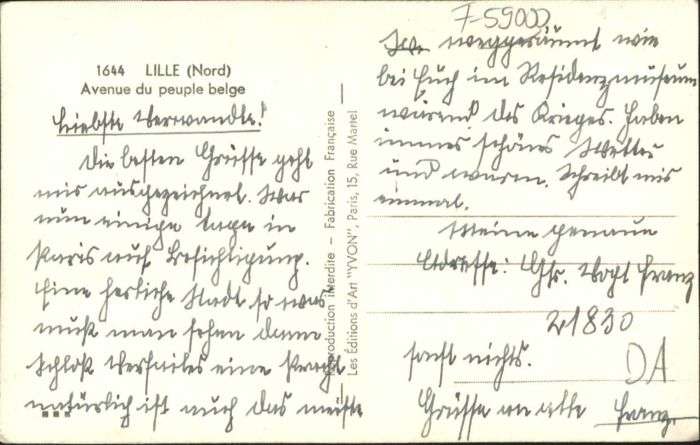 F-59000
1644 LILLE (Nord)
Avenue du peuple belge
Liebste Verwandte!
Die besten Grüsse geht
mir ausgezeichnet. War
nun einige tage in
Paris auf Besichtigung.
Eine herliche Stadt so was
muß man sehen dann
Schloß Versailes eine Pracht
natürlich ist auch das meiste
weggeräumt wie
bei Euch im Residenzmuseum
wärend des Krieges. Haben
immer schönes Wetter
und warm. Schreibt mir
einmal.
Meine genaue
Adresse: Gfr. Vogt Franz
21830
sonst nichts.
DA
Grüsse an alle Franz.
Reproduction interdite – Fabrication Française
Les Éditions d'Art "YVON", Paris, 15, Rue Martel